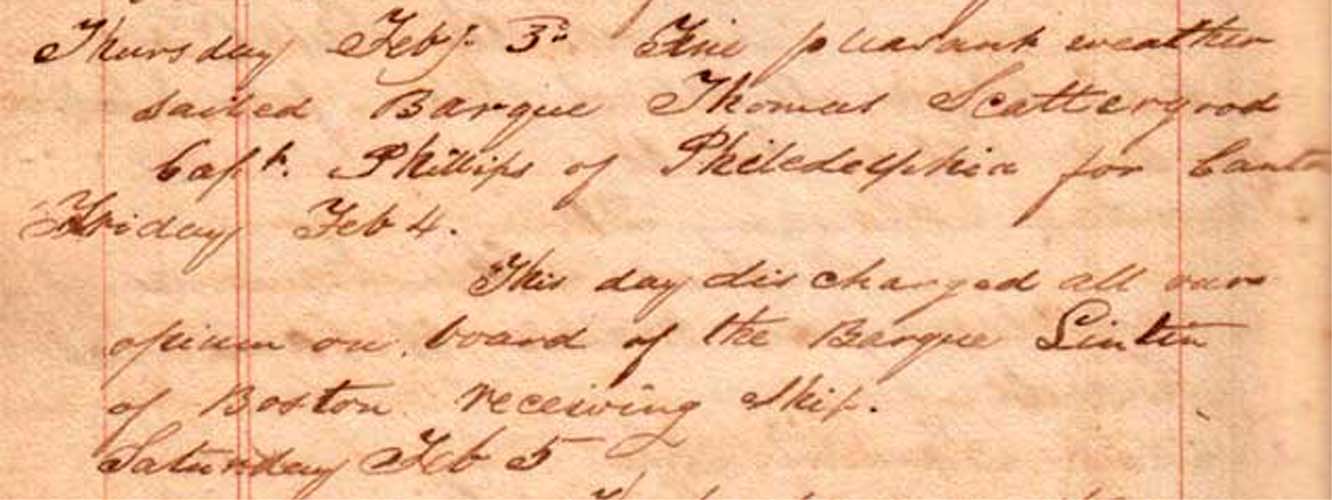 Thursday Feby. 3d Fine pleasant weather
sailed Barque Thomas Scattergood
Capt. Phillips of Philedelphia for
Friday Feb 4.
This day discharged all our
opium on board of the Barque Lintin
of Boston receiving ship.
Saturday Feb 5